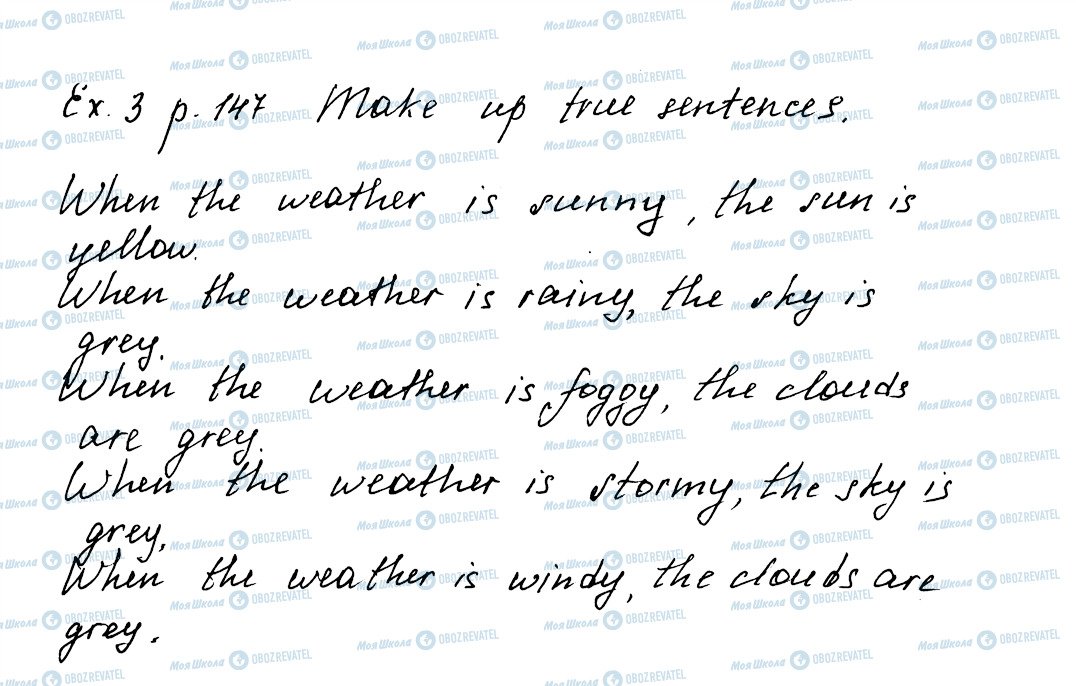 Ex. 3 p. 147 Make up true sentences.
When the weather is sunny, the sun is
yellow.
When the weather is rainy, the sky is
grey.
When the weather is foggy, the clouds
are grey.
When the weather is stormy, the sky is
grey.
When the weather is windy, the clouds are
grey.